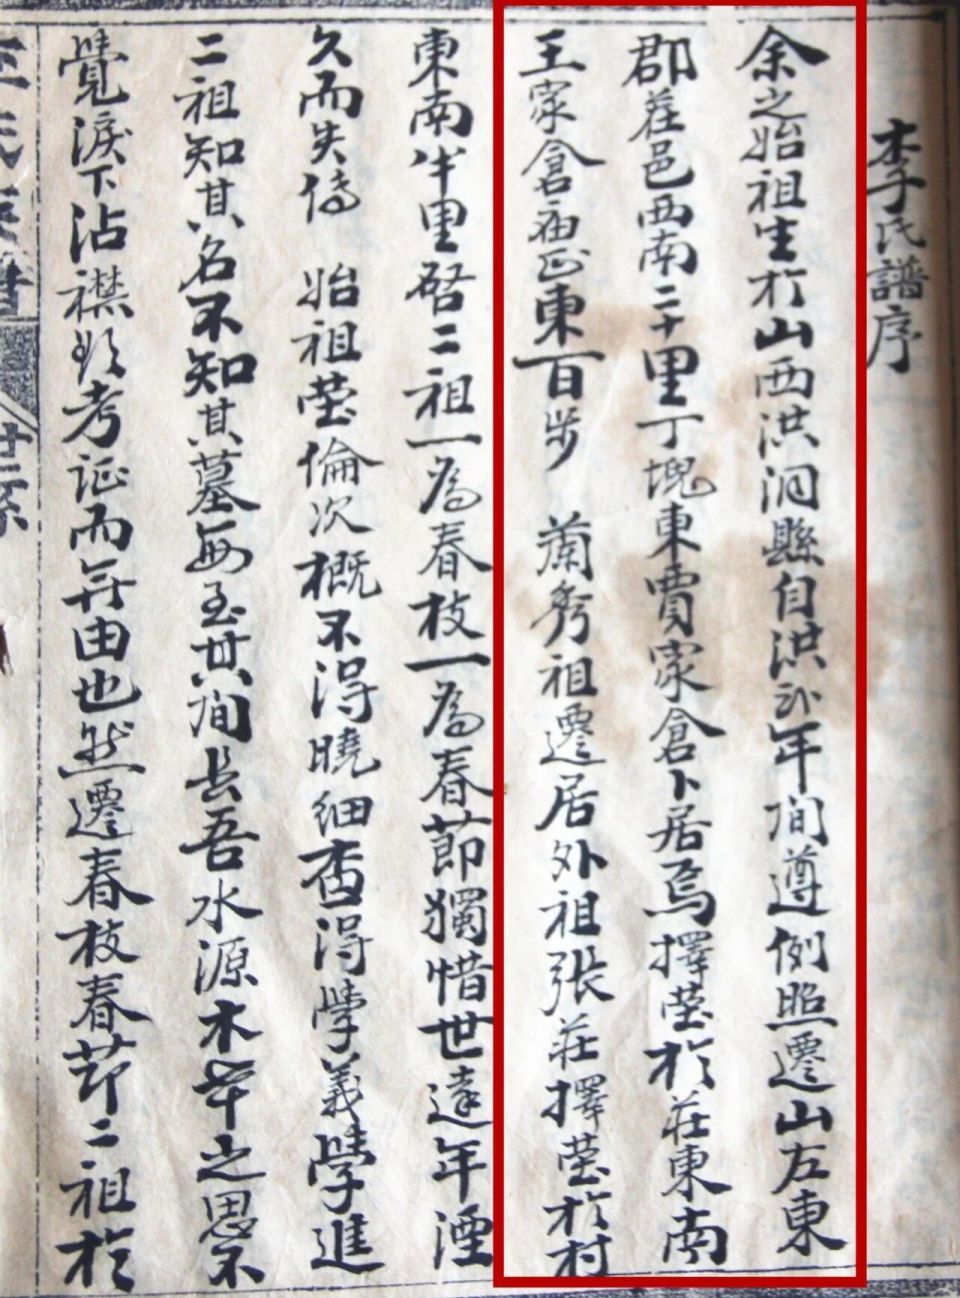 李氏譜序
余之始祖生於山西洪洞縣自洪武年間遵例照遷山左東
郡茌邑西南二十里丁塊東賈家倉卜居焉擇塋於莊東南
王家倉庙正東百步 蘭秀祖遷居外祖張莊擇塋於村
東南半里啓二祖一為春枝一為春節獨惜世遠年湮
久而失傳 始祖塋倫次概不淂曉細查淂學義學進
二祖知其名不知其墓每至其間長吾水源木本之思不
覺淚下沾襟難考証而無由也然遷春枝春节二祖於